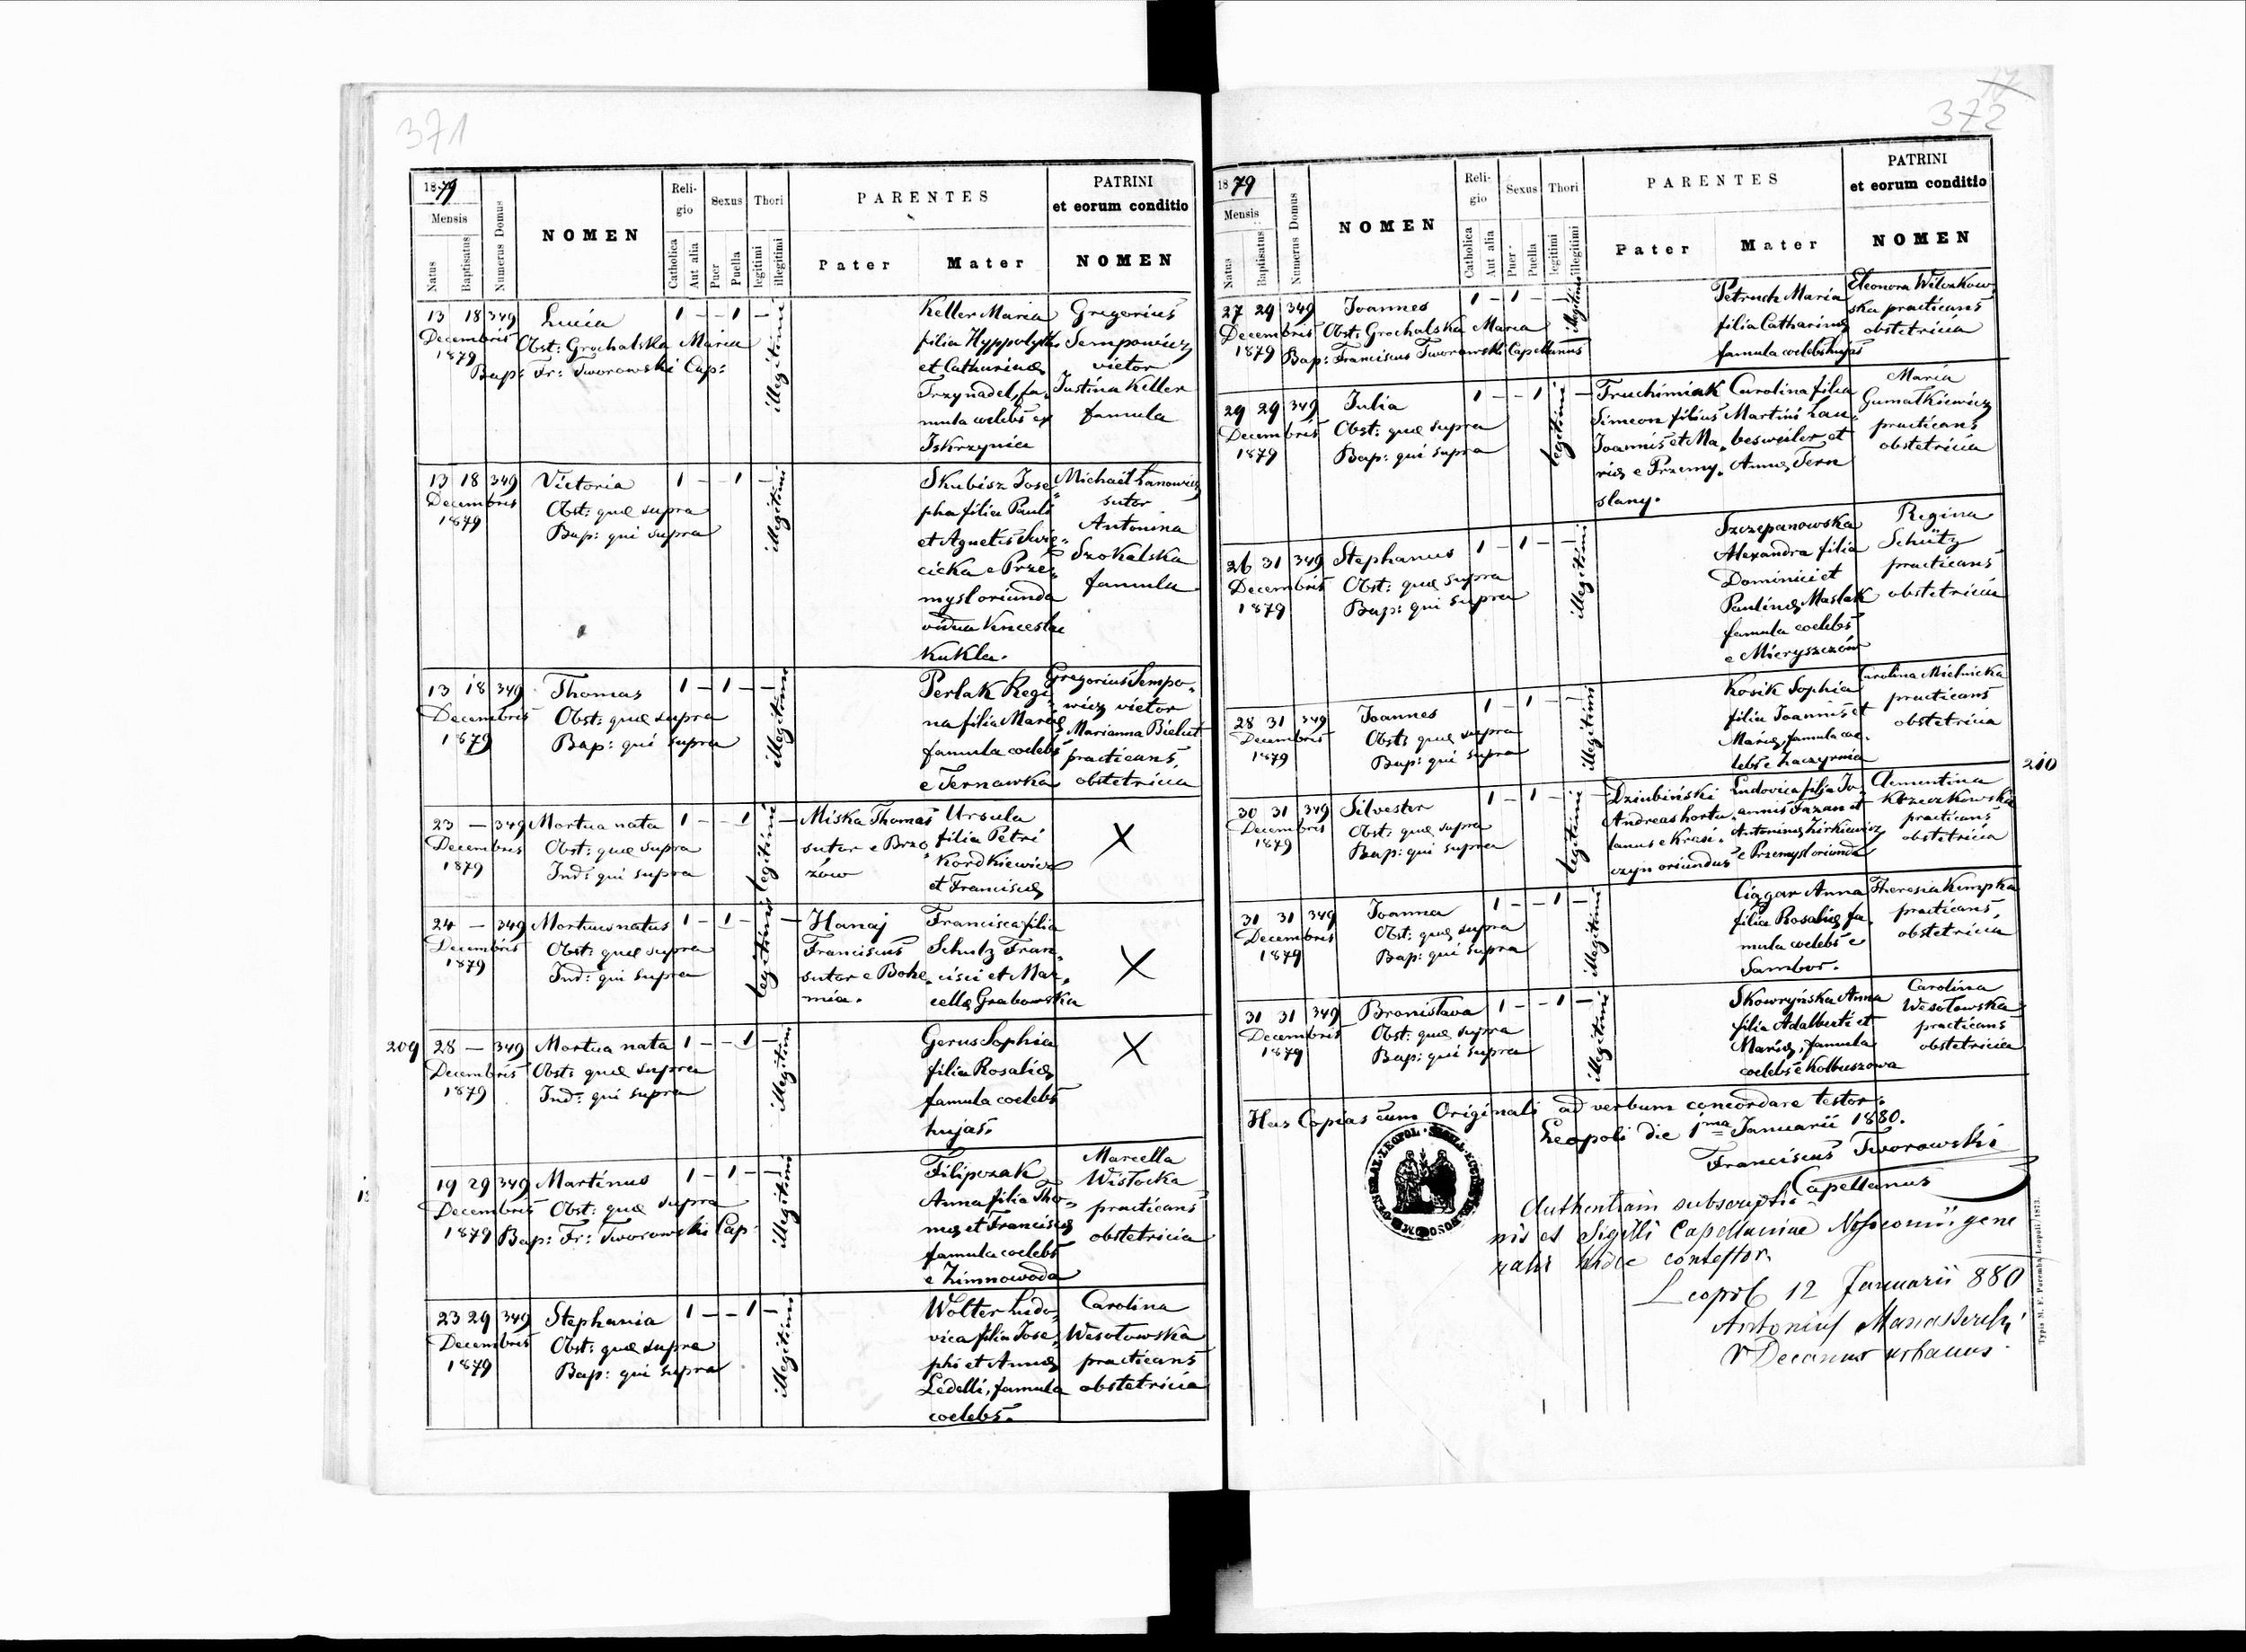 371
1879
Mensis
Natus
Baptisatus
Numerus Domus
NOMEN
Religio
Catholica
Aut alia
Sexus
Puer
Puella
Thori
legitimi
illegitimi
PARENTES
Pater
Mater
PATRINI
et eorum conditio
NOMEN
13 18 349 Lucia 1 – – 1 –
Decembris Obst: Grochalska Maria
1879 Bap: Fr: Tworowski Cap:
illegitimi
Keller Maria
filia Hyppolyti
et Catharinæ
Trzynadel, fa-
mula coelebs ex
Iskrzynia
Gregorius
Semponicz
vietor
Justina Keller
famula
13 18 349 Victoria 1 – – 1 –
Decembris Obst: quæ supra
1879 Bap: qui supra
illegitimi
Skubisz Jose-
pha filia Pauli
et Agnetis Swię-
cicka e Prze-
mysl oriunda
vidua Venceslai
Kukla.
Michael Lanowicz
sutor
Antonina
Szokalska
famula
13 18 349 Thomas 1 – 1 – –
Decembris Obst: quæ supra
1879 Bap: qui supra
illegitimi
Perlak Regi-
na filia Mariæ
famula coelebs
e Ternawka
Gregorius Sempo-
wicz vietor
Marianna Bielut
practicans
obstetricia
23 – 349 Mortua nata 1 – – 1 –
Decembris Obst: quæ supra
1879 Ind: qui supra
legitimi
Miska Thomas
sutor e Brzo-
zów
Ursula
filia Petri
Kordkiewicz
et Franciscæ
X
24 – 349 Mortuus natus 1 – 1 – –
Decembris Obst: quæ supra
1879 Ind: qui supra
legitimi
Hanaj
Franciscus
sutor e Bohe-
mia.
Francisca filia
Schulz Fran-
cisci et Mar-
cellæ Grabowska
X
209 28 – 349 Mortua nata 1 – – 1 –
Decembris Obst: quæ supra
1879 Ind: qui supra
illegitimi
Gerus Sophia
filia Rosaliæ
famula coelebs
hujas.
X
19 29 349 Martinus 1 – 1 – –
Decembris Obst: quæ supra
1879 Bap: Fr: Tworowski Cap:
illegitimi
Filipczak
Anna filia Tho-
mæ et Franciscæ
famula coelebs
e Zimnowoda
Marcella
Wisłocka
practicans
obstetricia
23 29 349 Stephania 1 – – 1 –
Decembris Obst: quæ supra
1879 Bap: qui supra
illegitimi
Wolter Ludo-
vica filia Jose-
phi et Annæ
Ledelli, famula
coelebs.
Carolina
Wesołowska
practicans
obstetricia
17
372
1879
Mensis
Natus
Baptisatus
Numerus Domus
NOMEN
Religio
Catholica
Aut alia
Sexus
Puer
Puella
Thori
legitimi
illegitimi
PARENTES
Pater
Mater
PATRINI
et eorum conditio
NOMEN
27 29 349 Joannes 1 – 1 – –
Decembris Obst: Grochalska Maria
1879 Bap: Franciscus Tworowski Capellanus
illegitimi
Petruch Maria
filia Catharinæ
famula coelebs hujas
Eleonora Wilczkow-
ska practicans
obstetricia
29 29 349 Julia 1 – – 1 –
Decembris Obst: quæ supra
1879 Bap: qui supra
legitimi
Truchimiak
Simeon filius
Joannis et Ma-
riæ e Przemy-
slany.
Carolina filia
Martini Lau-
besweiler et
Annæ Tern
Maria
Gumatkiewicz
practicans
obstetricia
26 31 349 Stephanus 1 – 1 – –
Decembris Obst: quæ supra
1879 Bap: qui supra
illegitimi
Szczepanowska
Alexandra filia
Dominici et
Paulinæ Maslak
famula coelebs
e Mieryszczów
Regina
Schütz
practicans
obstetricia
28 31 349 Joannes 1 – 1 – –
Decembris Obst: quæ supra
1879 Bap: qui supra
illegitimi
Kosik Sophia
filia Joannis et
Mariæ, famula coe-
lebs e Zaczernia
Carolina Mielnicka
practicans
obstetricia
210
30 31 349 Silvester 1 – 1 – –
Decembris Obst: quæ supra
1879 Bap: qui supra
legitimi
Dziubiński
Andreas hortu-
lanus e Krasi-
czyn oriundus
Ludovica filia Jo-
annis Fazan et
Antoninæ Zirkiewicz
e Przemysl oriunda
Clementina
Krzeczkowska
practicans
obstetricia
31 31 349 Joanna 1 – – 1 –
Decembris Obst: quæ supra
1879 Bap: qui supra
illegitimi
Ciągar Anna
filia Rosaliæ fa-
mula coelebs e
Sambor.
Theresia Kempka
practicans,
obstetricia
31 31 349 Bronislava 1 – – 1 –
Decembris Obst: quæ supra
1879 Bap: qui supra
illegitimi
Skowryńska Anna
filia Adalberti et
Mariæ, famula
coelebs e Kolbuszowa
Carolina
Wesołowska
practicans
obstetricia
Has Copias cum Originali ad verbum concordare testor.
Leopoli die 1ma Januarii 1880.
Franciscus Tworowski
Capellanus
Authentiam subscriptio-
nis et Sigilli Capellaniae Nosocomii gene
ralis hisce contestor.
Leopol 12 Januarii 880
Antonius Manasterski
V Decanus urbanus.
Typis M. F. Poremba Leopoli 1873.